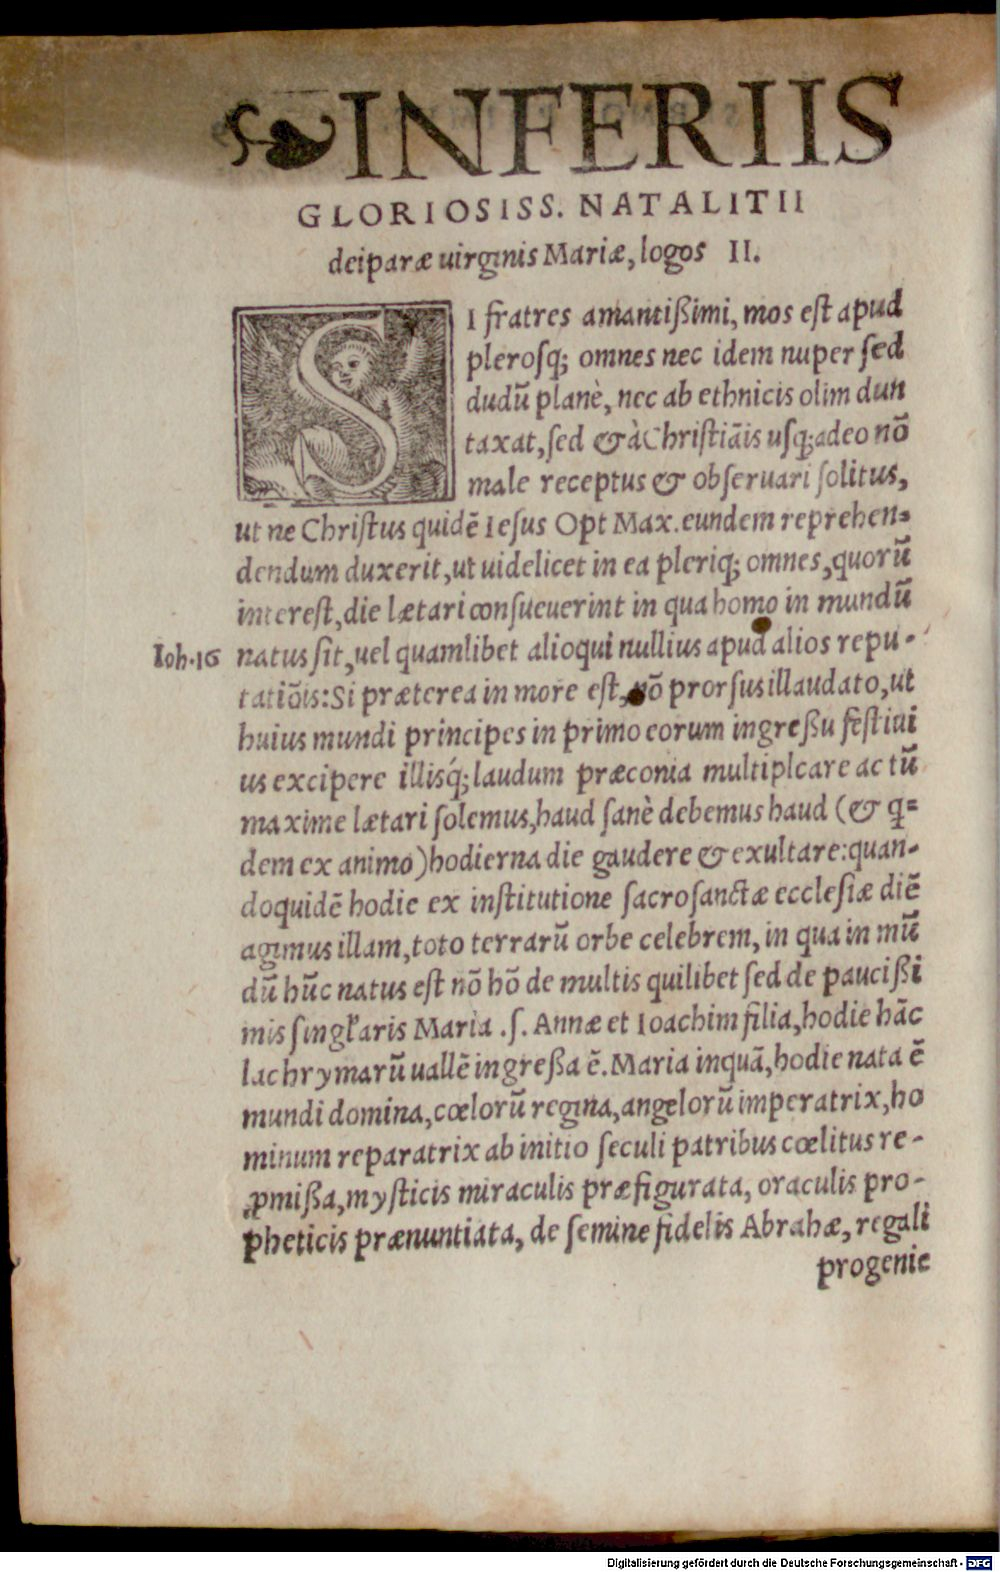 ❧INFERIIS
GLORIOSISS. NATALITII
deiparæ uirginis Mariæ, logos II.
SI fratres amantißimi, mos est apud
plerosq; omnes nec idem nuper sed
dudū planè, nec ab ethnicis olim dun
taxat, sed & à Christiāis usq; adeo nō
male receptus & obseruari solitus,
ut ne Christus quidē Iesus Opt Max. eundem reprehen-
dendum duxerit, ut uidelicet in ea pleriq; omnes, quorū
interest, die lætari consueuerint in qua homo in mundū
Ioh.16 natus sit, uel quamlibet alioqui nullius apud alios repu-
tatiōis: Si præterea in more est, nō prorsus illaudato, ut
huius mundi principes in primo eorum ingreßu festiui
us excipere illisq́; laudum præconia multiplcare ac tū
maxime lætari solemus, haud sanè debemus haud (& q-
dem ex animo) hodierna die gaudere & exultare: quan-
doquidē hodie ex institutione sacrosanctæ ecclesiæ diē
agimus illam, toto terrarū orbe celebrem, in qua in mū
dū hūc natus est nō hō de multis quilibet sed de paucißi
mis singl'aris Maria .s. Annæ et Ioachim filia, hodie hāc
lachrymarū uallē ingreßa ē. Maria inquā, hodie nata ē
mundi domina, cœlorū regina, angelorū imperatrix, ho
minum reparatrix ab initio seculi patribus cœlitus re-
ꝓmißa, mysticis miraculis præfigurata, oraculis pro-
pheticis prænuntiata, de semine fidelis Abrahæ, regali
progenie
Digitalisierung gefördert durch die Deutsche Forschungsgemeinschaft - DFG